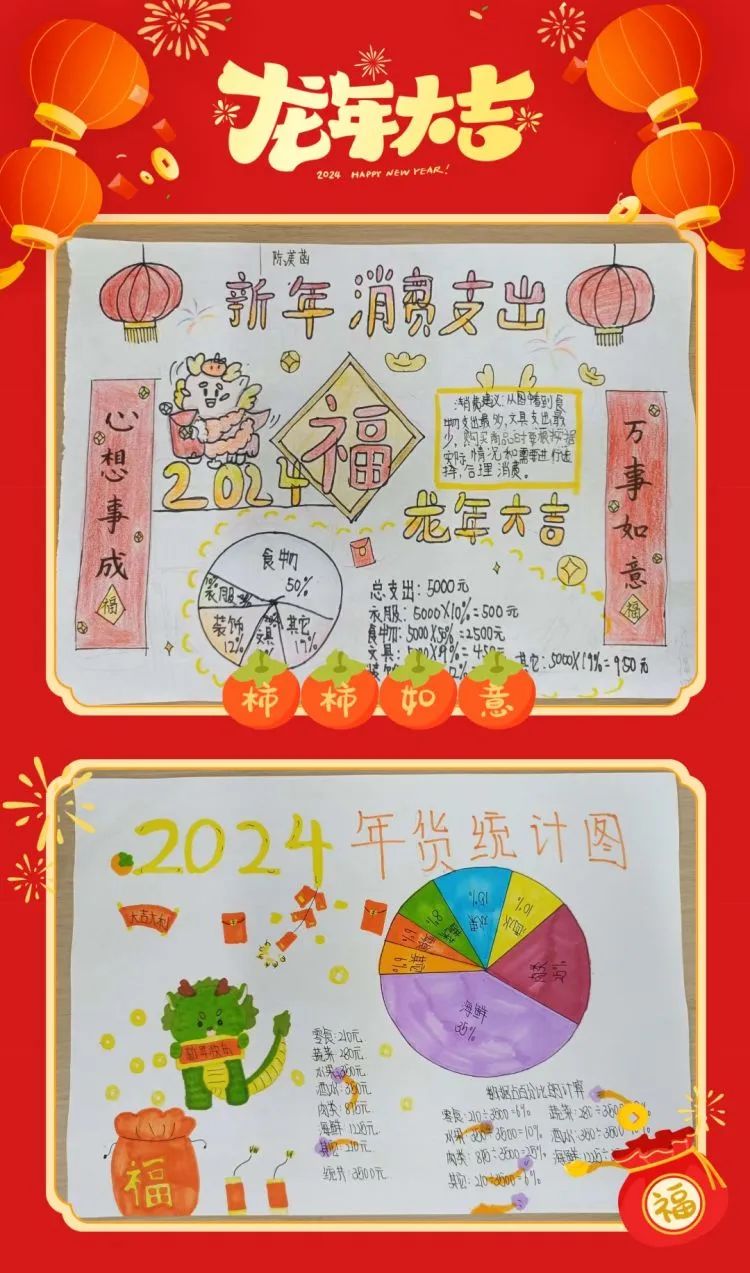 龙年大吉
2024 HAPPY NEW YEAR!
新年消费支出
心想事成
福
2024
福
消费建议:从图中看到食
物支出最多,文具支出最
少,购买商品时要根据
实际情况和需要进行选
择,合理消费。
龙年大吉
万事如意
福
食物
50%
10%
衣服
装饰
12%
文具
其它
19%
总支出:5000元
衣服:5000×10%=500元
食物:5000×50%=2500元
文具:5000×9%=450元
其它:5000×19%=950元
柿柿如意
2024年货统计图
大吉大利
新年快乐
福
酒水
10%
水果
肉类
25%
海鲜
35%
其它
6%
零食:210元
蔬菜:280元
水果:350元
酒水:350元
肉类:875元
海鲜:1225元
其它:210元
统共:3500元
数据百分比的计算
零食:210÷3500=6%
蔬菜:280÷
水果:350÷3500=10%
酒水:350÷
肉类:875÷3500=25%
海鲜:1225÷
其它:210÷3500=6%
福